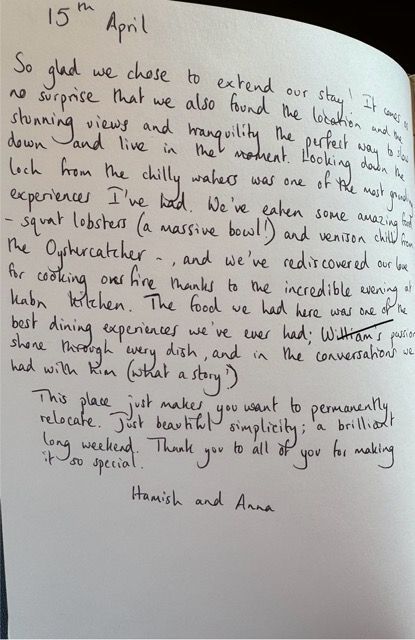 15th April
So glad we chose to extend our stay! It comes as
no surprise that we also found the location and the
stunning views and tranquility the perfect way to slow
down and live in the moment. Looking down the
loch from the chilly waters was one of the most grounding
experiences I've had. We've eaten some amazing food
- squat lobsters (a massive bowl!) and venison chilli from
the Oystercatcher -, and we've rediscovered our love
for cooking over fire thanks to the incredible evening at
kabn kitchen. The food we had here was one of the
best dining experiences we've ever had; William's passion
shone through every dish, and in the conversations we
had with him (what a story!)
This place just makes you want to permanently
relocate. Just beautiful simplicity; a brilliant
long weekend. Thank you to all of you for making
it so special.
Hamish and Anna